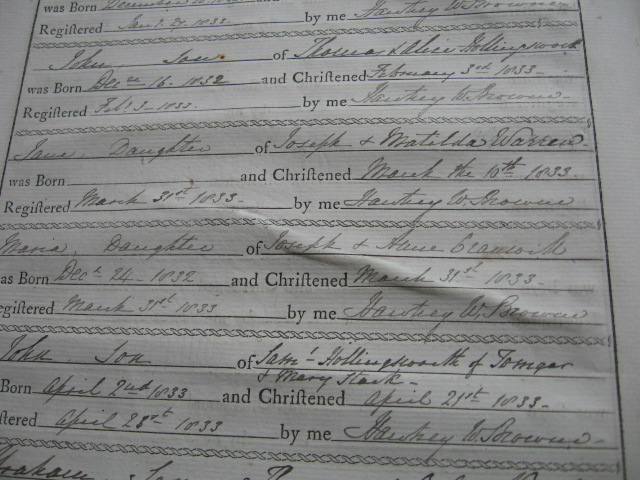 was Born December
Registered Jan. 2. 1833 by me Hawtrey W. Browne
John Son of Thomas & Alice Hollingworth
was Born Decr 16. 1832 and Chriſtened February 3rd 1833-
Regiſtered Feb. 3. 1833. by me Hawtrey W. Browne
Jane Daughter of Joseph & Matilda Warren
was Born and Chriſtened March the 10th 1833.
Regiſtered March 31st 1833 by me Hawtrey W. Browne
Maria. Daughter of Joseph & Anne
as Born Decr 24 1832 and Chriſtened March 31st 1833-
egiſtered March 31st 1833 by me Hawtrey W. Browne
John Son of Saml Hollingworth of
& Mary
Born April 2nd 1833 and Chriſtened April 21st 1833-
ſtered April 1833 by me Hawtrey W. Browne-